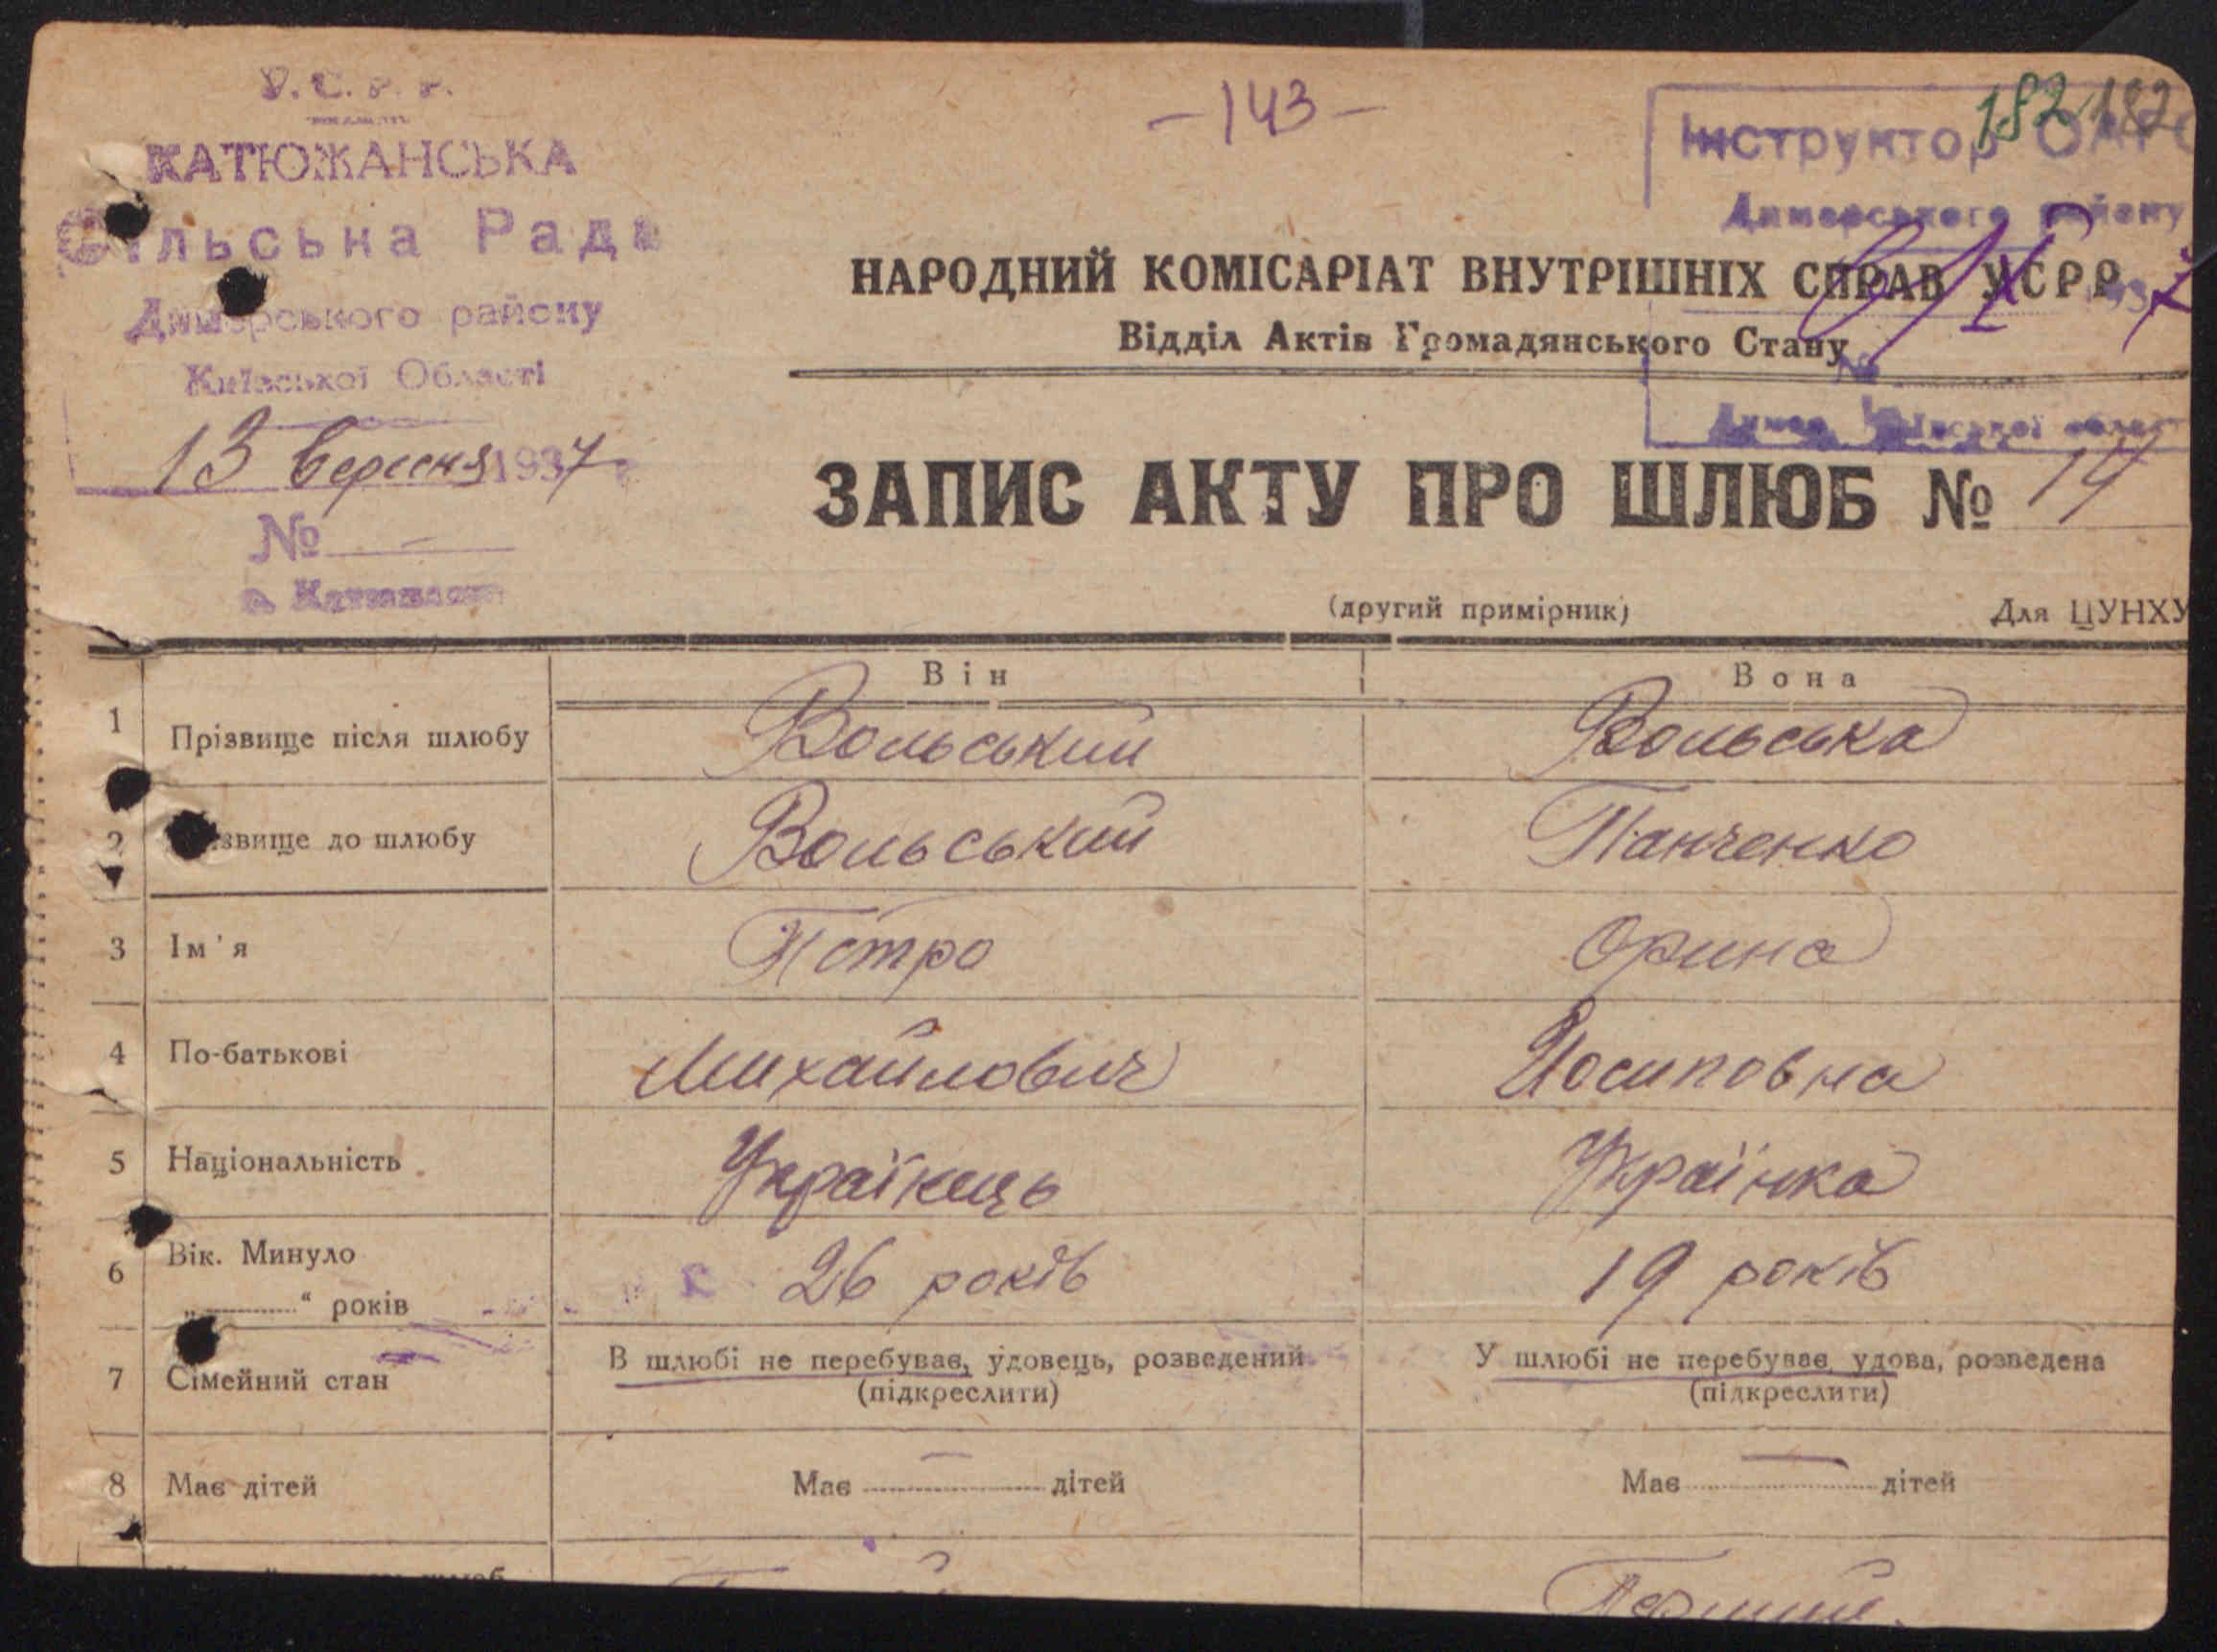 У.С.Р.Р.
КАТЮЖАНСЬКА
Сільська Рада
Димерського району
Київської Області
13 вересня 1937
№ -
- 143 -
182 182
Інструктор
Димерського району
№
НАРОДНИЙ КОМІСАРІАТ ВНУТРІШНІХ СПРАВ УСРР
Відділ Актів Громадянського Стану
ЗАПИС АКТУ ПРО ШЛЮБ № 14
(другий примірник) Для ЦУНХУ
Він Вона
1 Прізвище після шлюбу Вольський Вольська
2 звище до шлюбу Вольський Панченко
3 Ім'я Петро Орина
4 По-батькові Михайлович Йосиповна
5 Національність Українець Українка
6 Вік. Минуло
„ “ років 26 років 19 років
7 Сімейний стан В шлюбі не перебував, удовець, розведений У шлюбі не перебуває, удова, розведена
(підкреслити) (підкреслити)
8 Має дітей Має — дітей Має — дітей
Перший